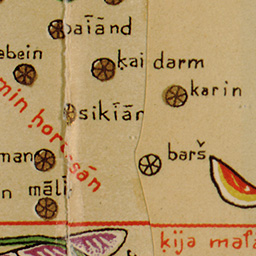 paīānd
abein
ḳai darm
karin
min ḥorasān
sikīān
man
barš
n māli
ḳija mala